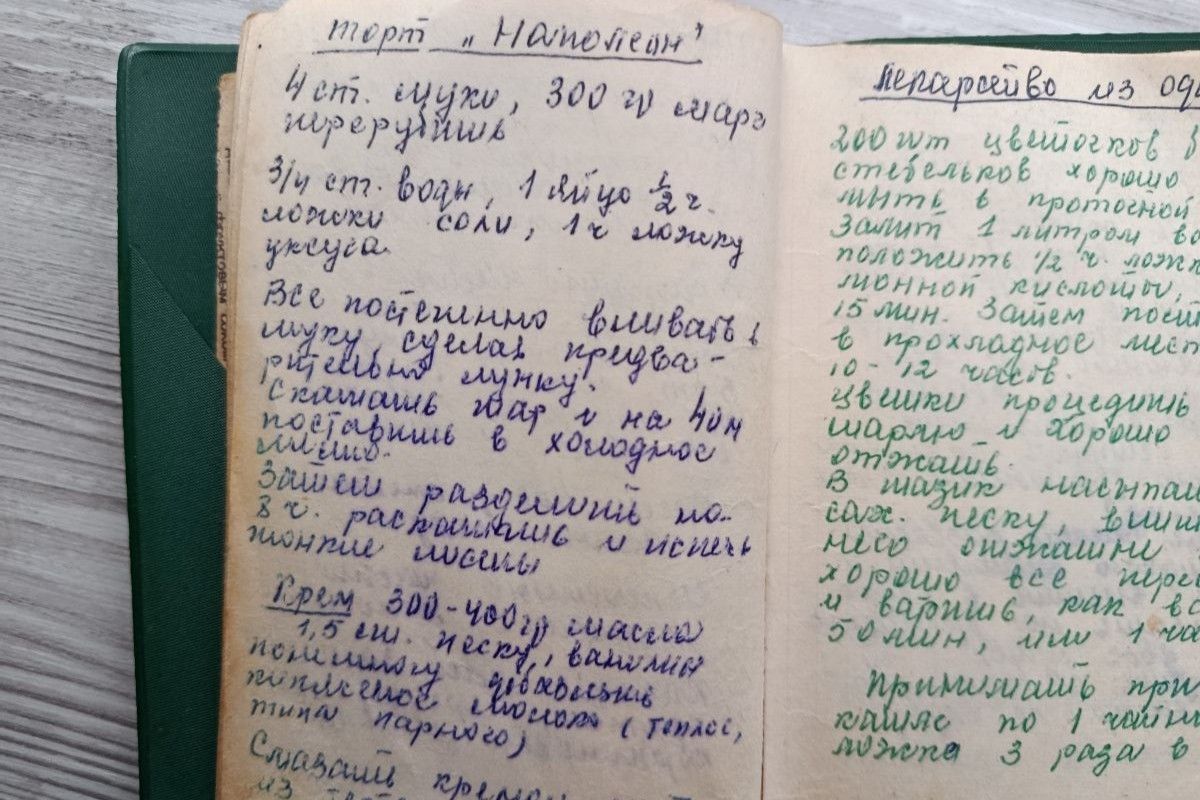 торт „Наполеон"
4 ст. муки, 300 гр марг
перерубить
3/4 ст. воды, 1 яйцо 1/2 ч.
ложки соли, 1 ч ложку
уксуса.
Все постепенно вливать в
муку, сделав предва-
рительно лунку.
Скатать шар и на 40м
поставить в холодное
место.
Затем разделить на
8 ч. раскатать и испечь
тонкие листы
Крем 300-400гр масла
1,5 ст. песку, ванилин
понемногу добавлять
кипяченое молоко (теплое,
типа парного)
Смазать кремом
из
лекарство из оду
200 шт цветочков б
стебельков хорошо
мыть в проточной
Залит 1 литром во
положить 1/2 ч. ложк
монной кислоты,
15 мин. Затем пост
в прохладное мест
10-12 часов.
цветки процедить
марлю и хорошо
отжать.
В тазик насыпат
сах. песку, влит
него отжатые
хорошо все пере
и варить, как ва
50 мин, или 1 ча
Принимать при
кашле по 1 чайн
ложке 3 раза в